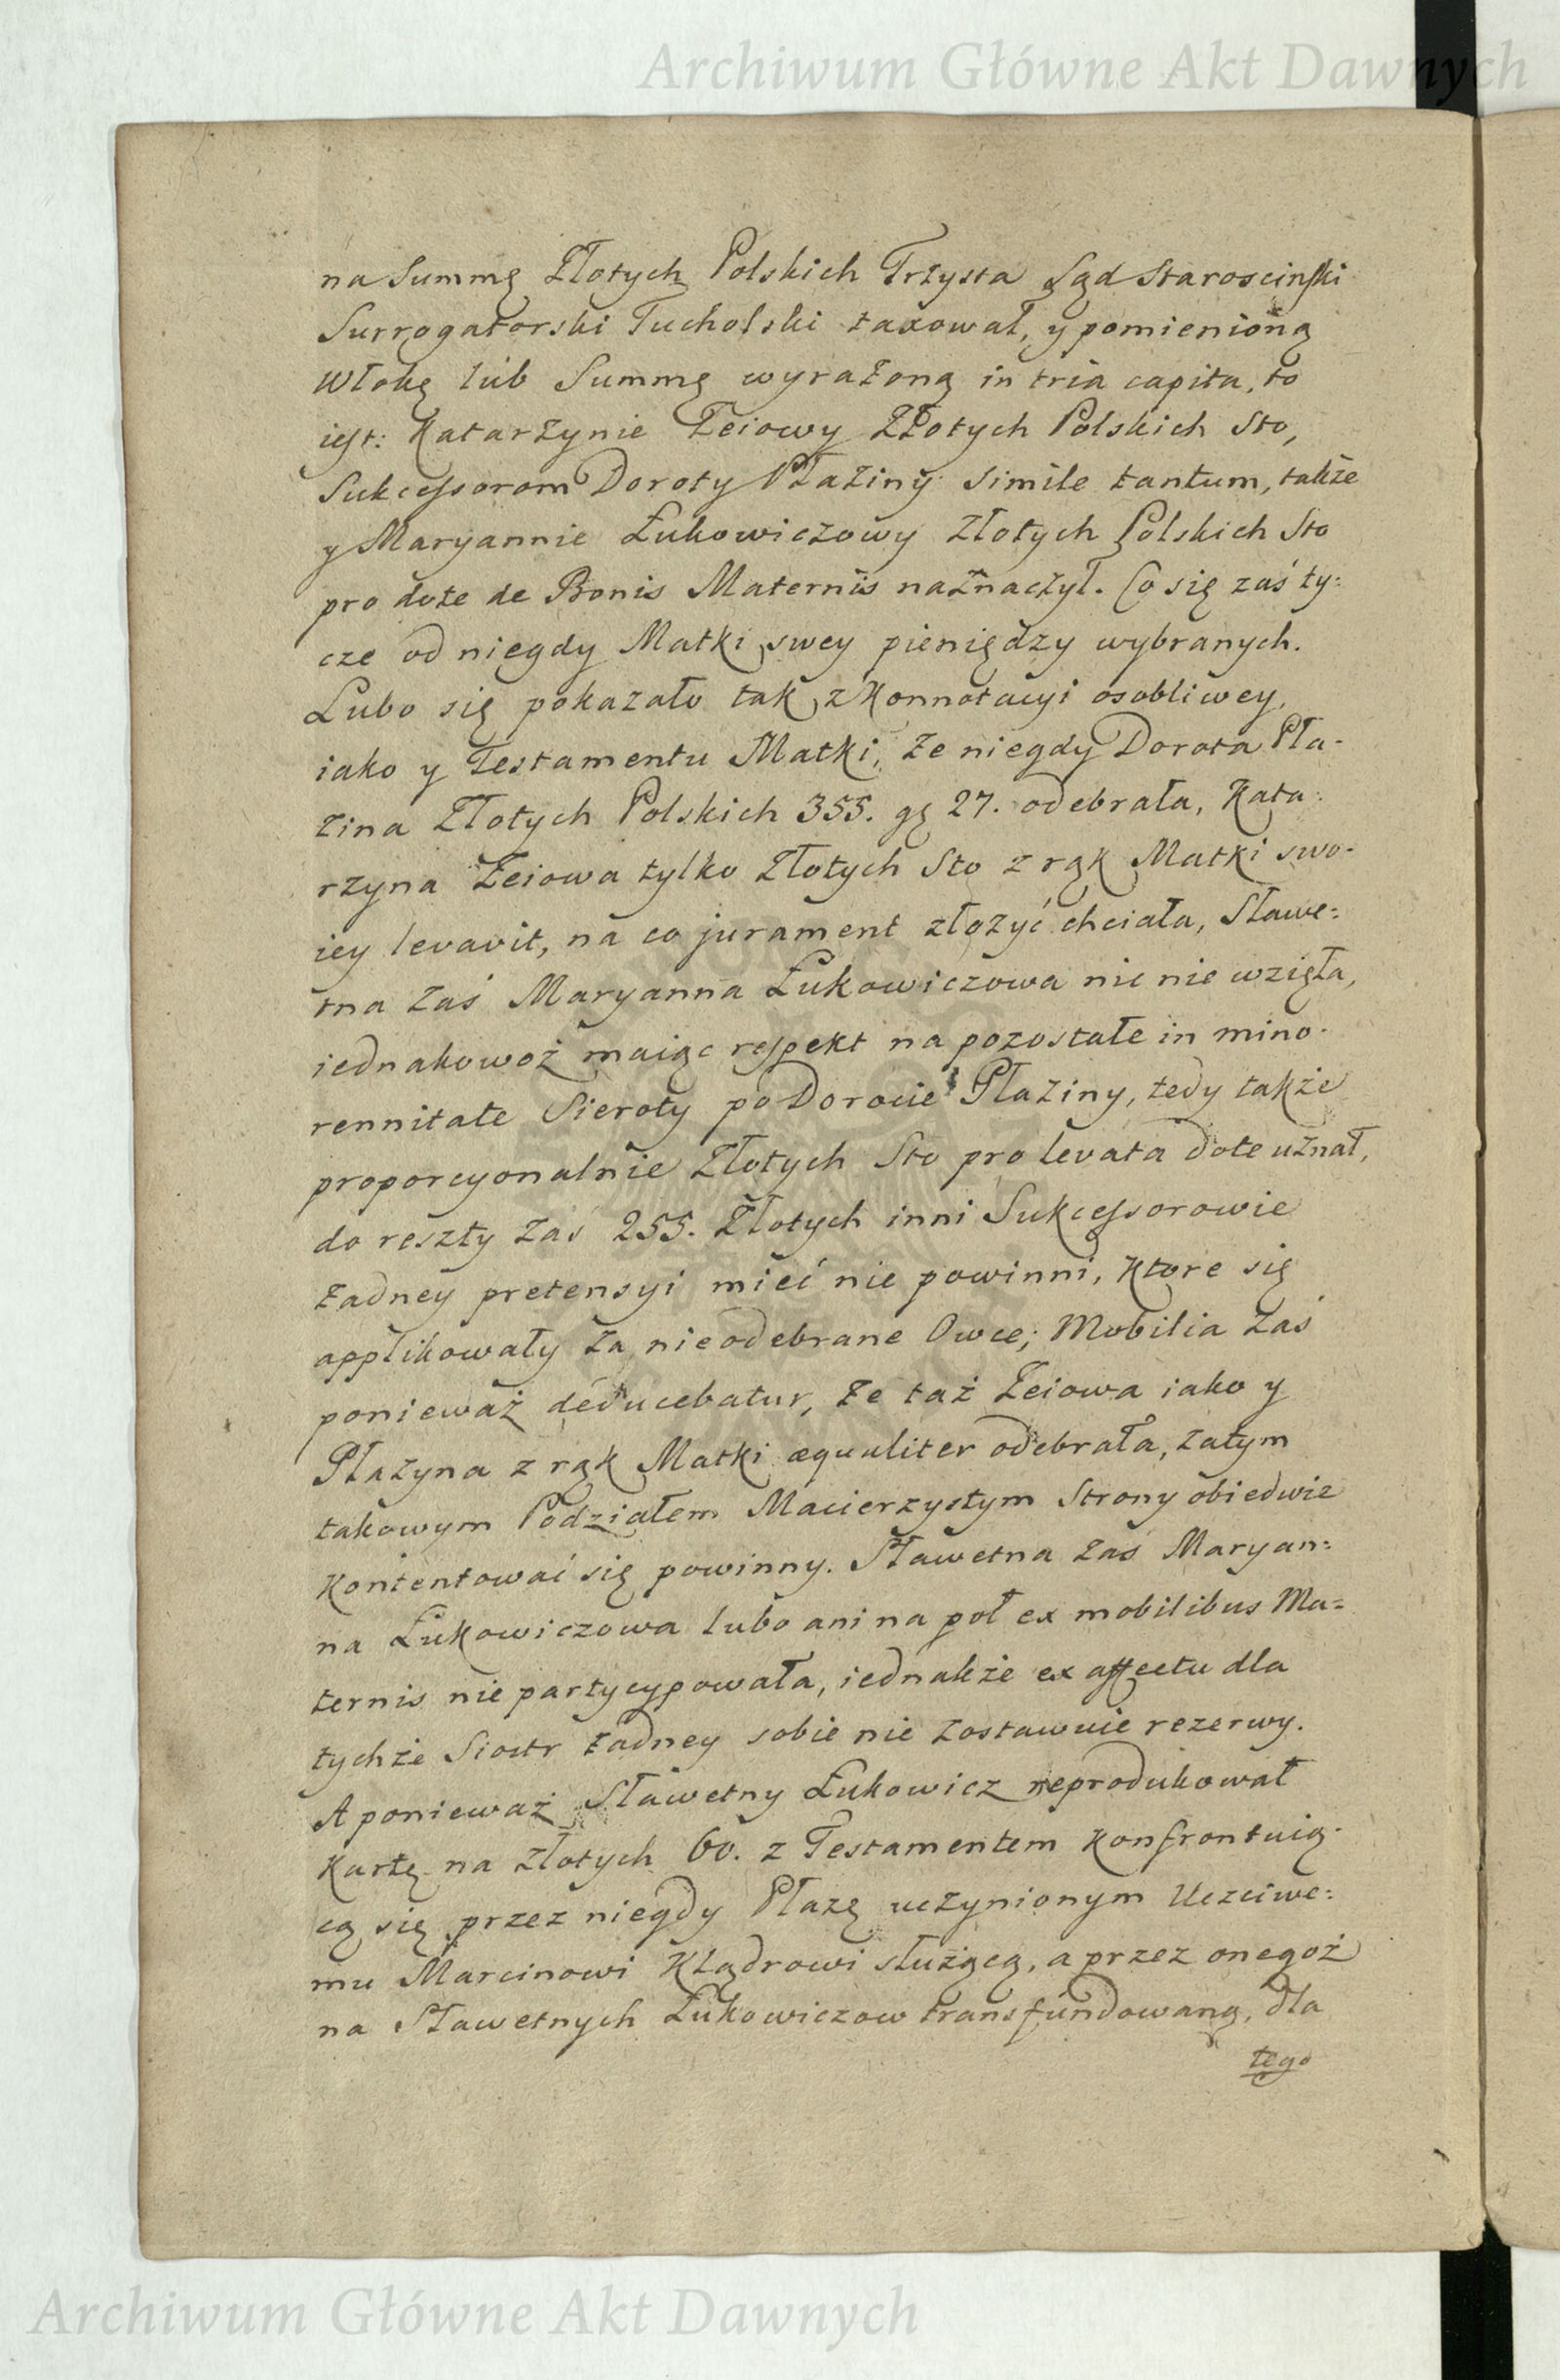 Archiwum Główne Akt Dawnych
na Summę Złotych Polskich Trzysta Sąd Starosciński
Surrogatorski Tucholski taxował, y pomienioną
Włokę lub Summę wyrażoną in tria capita, to
iest: Katarzynie Zeiowy Złotych Polskich Sto,
Sukcessorom Doroty Płaziny simile tantum, także
y Maryannie Łukowiczowy Złotych Polskich Sto
pro dote de Bonis Maternis naznaczył. Co się zaś ty=
cze od niegdy Matki swey pieniędzy wybranych.
Lubo się pokazało tak z Konnotacyi osobliwey,
iako y Testamentu Matki, że niegdy Dorota Pła-
zina Złotych Polskich 355. gę 27. odebrała, Kata-
rzyna Zeiowa tylko Złotych Sto z rąk Matki swo-
iey levavit, na co jurament złożyć chciała, Sławe=
tna zaś Maryanna Łukowiczowa nic nie wzięła,
iednakowoż maiąc respekt na pozostałe in mino-
rennitate Sieroty po Dorocie Płaziny, tedy także
proporcyonalnie Złotych Sto pro levata dote uznał,
do reszty zaś 255. Złotych inni Sukcessorowie
żadney pretensyi mieć nie powinni, ktore się
applikowały za nieodebrane Owce; Mobilia zaś
ponieważ deducebatur, że taż Zeiowa iako y
Płazyna z rąk Matki æqualiter odebrała, zatym
takowym Podziałem Macierzystym Strony obiedwie
Kontentować się powinny. Sławetna zaś Maryan=
na Łukowiczowa lubo ani na poł ex mobilibus Ma=
ternis nie partycypowała, iednakże ex affectu dla
tychże Siostr żadney sobie nie zostawuie rezerwy.
A ponieważ Sławetny Łukowicz reprodukował
Kartę na Złotych 60. z Testamentem Konfrontuią-
cą się przez niegdy Płazę uczynionym Uczciwe=
mu Marcinowi Klądrowi służącą, a przez onegoż
na Sławetnych Łukowiczow transfundowaną, dla
tego
Archiwum Główne Akt Dawnych